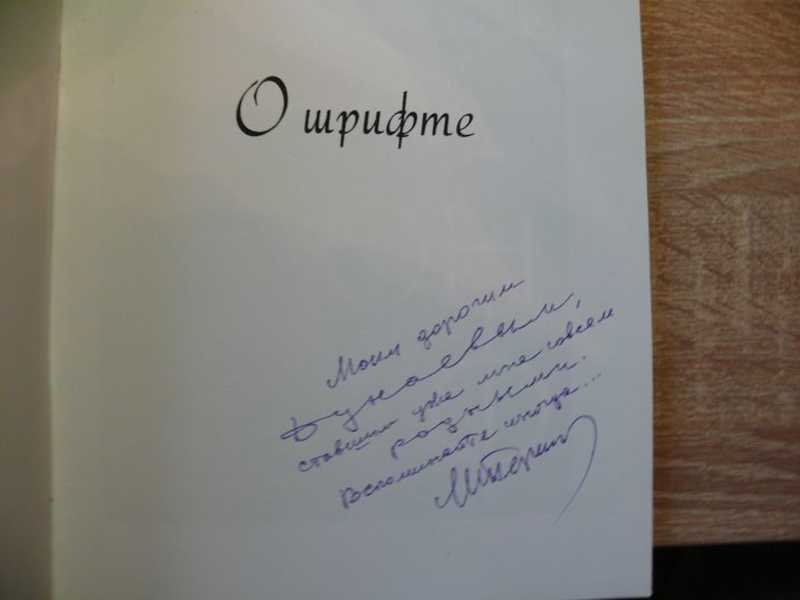 О шрифте
Моим дорогим
Дунаевым,
ставшим уже мне совсем
родными.
Воспоминайте иногда...